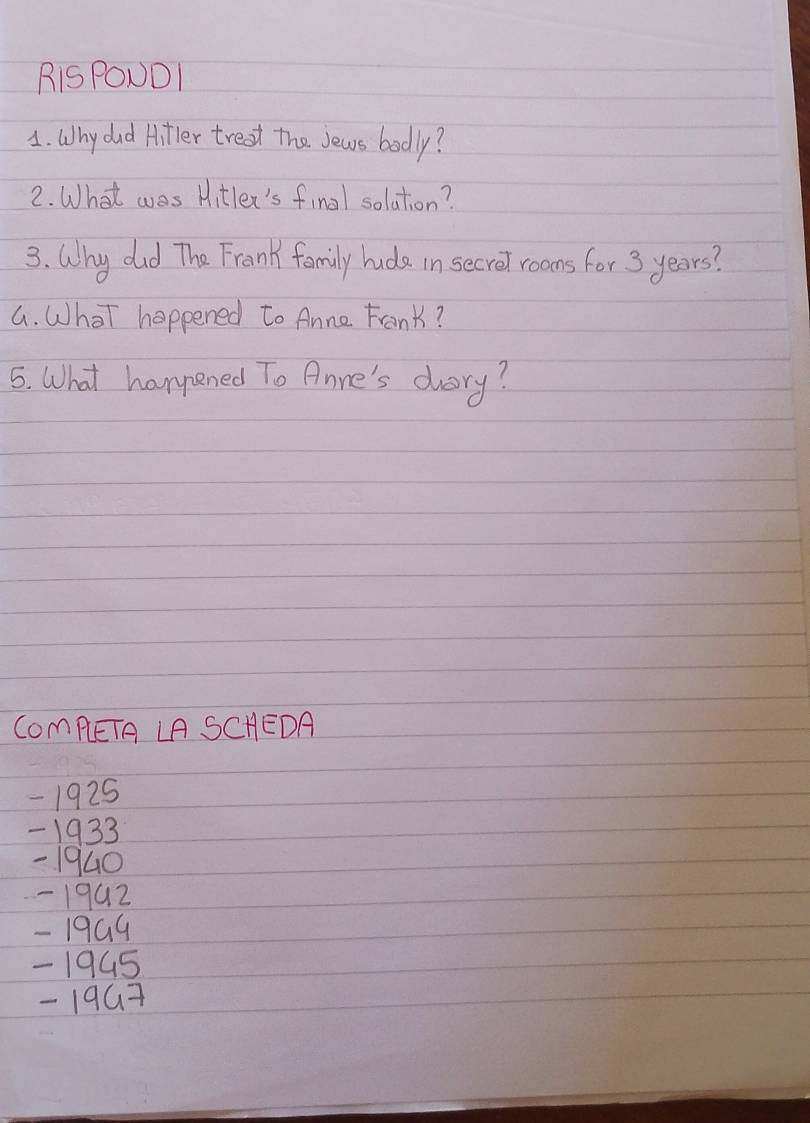 RISPONDI
1. Why did Hitler treat the Jews badly?
2. What was Hitler's final solution?
3. Why did The Frank family hide in secret rooms for 3 years?
4. What happened to Anne Frank?
5. What harpened To Anne's diary?
COMPLETA LA SCHEDA
- 1925
- 1933
- 1940
- 1942
- 1944
- 1945
- 1947